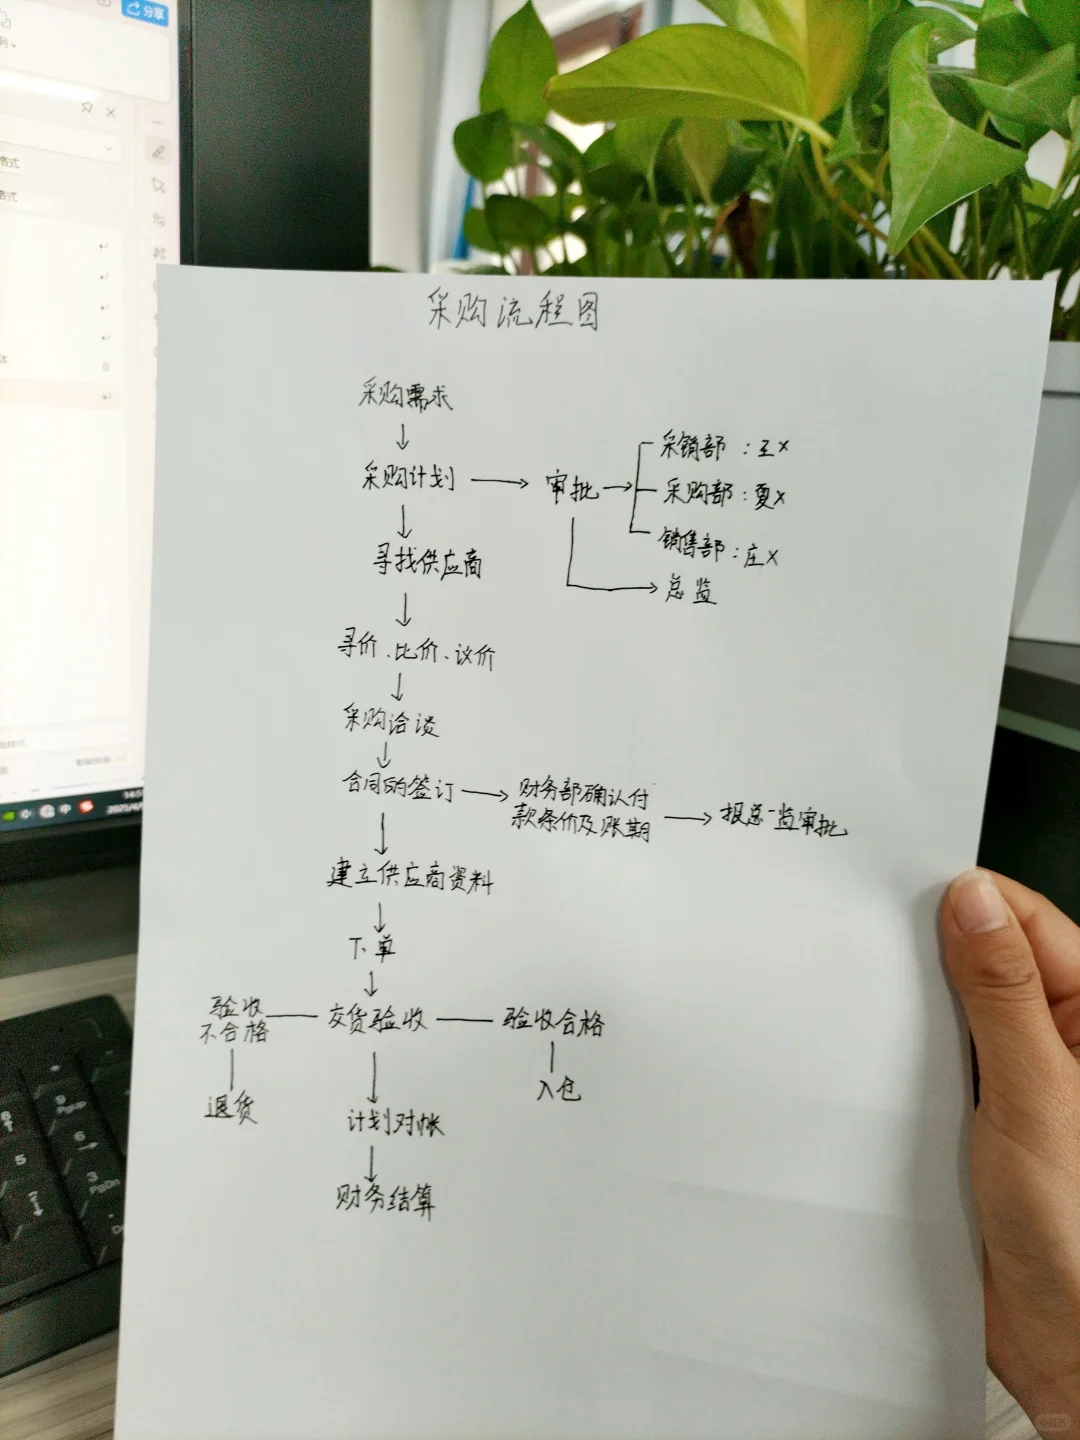 分享
格式
格式
采购流程图
采购需求
采购计划
审批
采销部：王X
采购部：夏X
销售部：庄X
总监
寻找供应商
寻价、比价、议价
采购洽谈
合同的签订
财务部确认付
款条价及账期
报总监审批
建立供应商资料
下单
验收
不合格
交货验收
验收合格
退货
入仓
计划对帐
财务结算
9
PgUp
6
5
3
PgDn
2
小红书